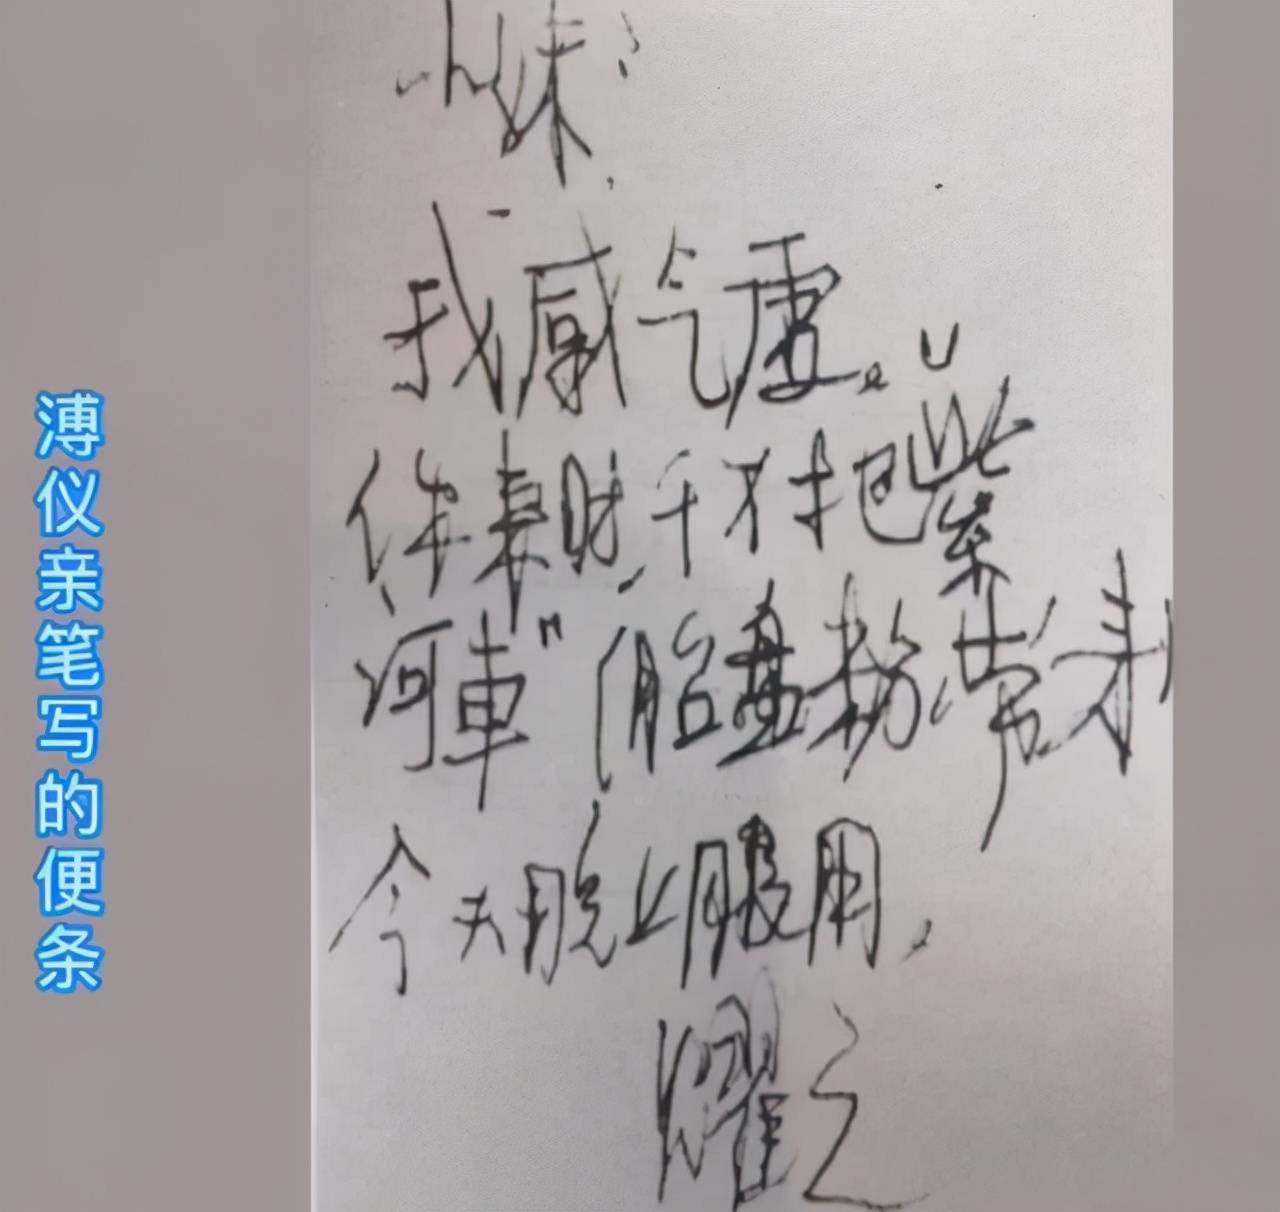 溥仪亲笔写的便条
小妹：
我感气虚。
你来时，千万把“紫
河車”（胎盘粉）带来
今天晚上服用，
耀之